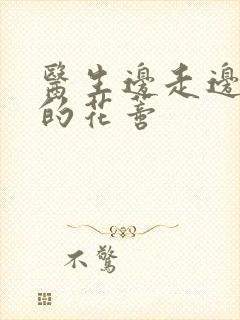 醫生邊走邊
的花蕾
不驚